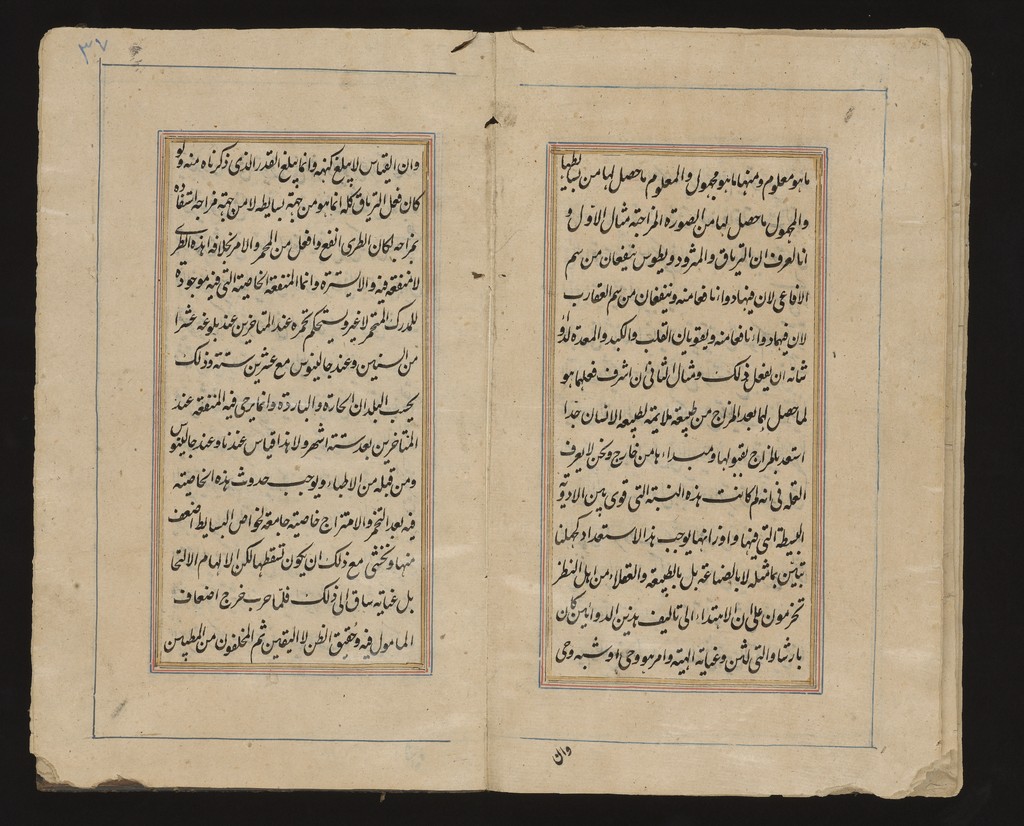 ما هو معلوم ومنها ما هو مجهول والمعلوم ما حصل لها من بسايطها
والمجهول ما حصل لها من الصورة المزاجية مثال الاول
انا نعرف ان الترياق والمثروديطوس ينفعان من سم
الافاعى لان فيها دواء نافعا منه وينفعان من سم العقارب
لان فيها دواء نافعا منه ويقويان القلب والكبد والمعدة
شانه ان يفعل ذلك ومثال الثانى ان اشرف فعلها هو
لما حصل لها بعد المزاج من طبيعة ملايمة لطبيعة الانسان جدا
استعد بالمزاج لقبولها ومبداءها من خارج ونحن لا نعرف
العلة فى انه لم كانت هذه النسبة التى قوى بين الادوية
البسيطة التى فيها واوزانها يوجب هذا الاستعداد كجهلنا
بمثله لا بالصناعة بل بالطبيعة والعقلاء من اهل النظر
على ان الابتداء الى تاليف هذين الدوائين كان
الهية وامر هو وحى او شبه وحى
وان
٣٧
وان القياس لا يبلغ كنهه وانما يبلغ القدر الذى ذكرناه منه ولو
كان فعل الترياق كله انما هو من جهة بسايطه لا من جهة مزاحه استفاده
بمزاجه لكان الطرى انفع وافعل من المخمر والامر بخلافه اذ هذه الطرى
لا منفعة فيه والا يسيرة وانما المنفعة الخاصية التى فيه موجودة
للمدرك المتخمر لا غير ويستحكم تخمره عند المتاخرين عند بلوغه عشرا
من السنين وعند جالينوس مع عشرين سنة وذلك
بحسب البلدان الحارة والباردة وانما يرجى فيه المنفعة عند
المتاخرين بعد ستة اشهر ولا هذا قياس عندنا وعند جالينوس
ومن قبله من الاطباء ويوجب حدوث هذه الخاصية
فيه بعد التخمر والامتزاج خاصية جامعة لخواص البسايط اضعف
منها ونخشى مع ذلك ان يكون تسقطها لكن الالهام
بل عناية ساق الى ذلك فلما جرب خرج اضعاف
المامول فيه وحقيق الظن لا اليقين ثم المخلفون من